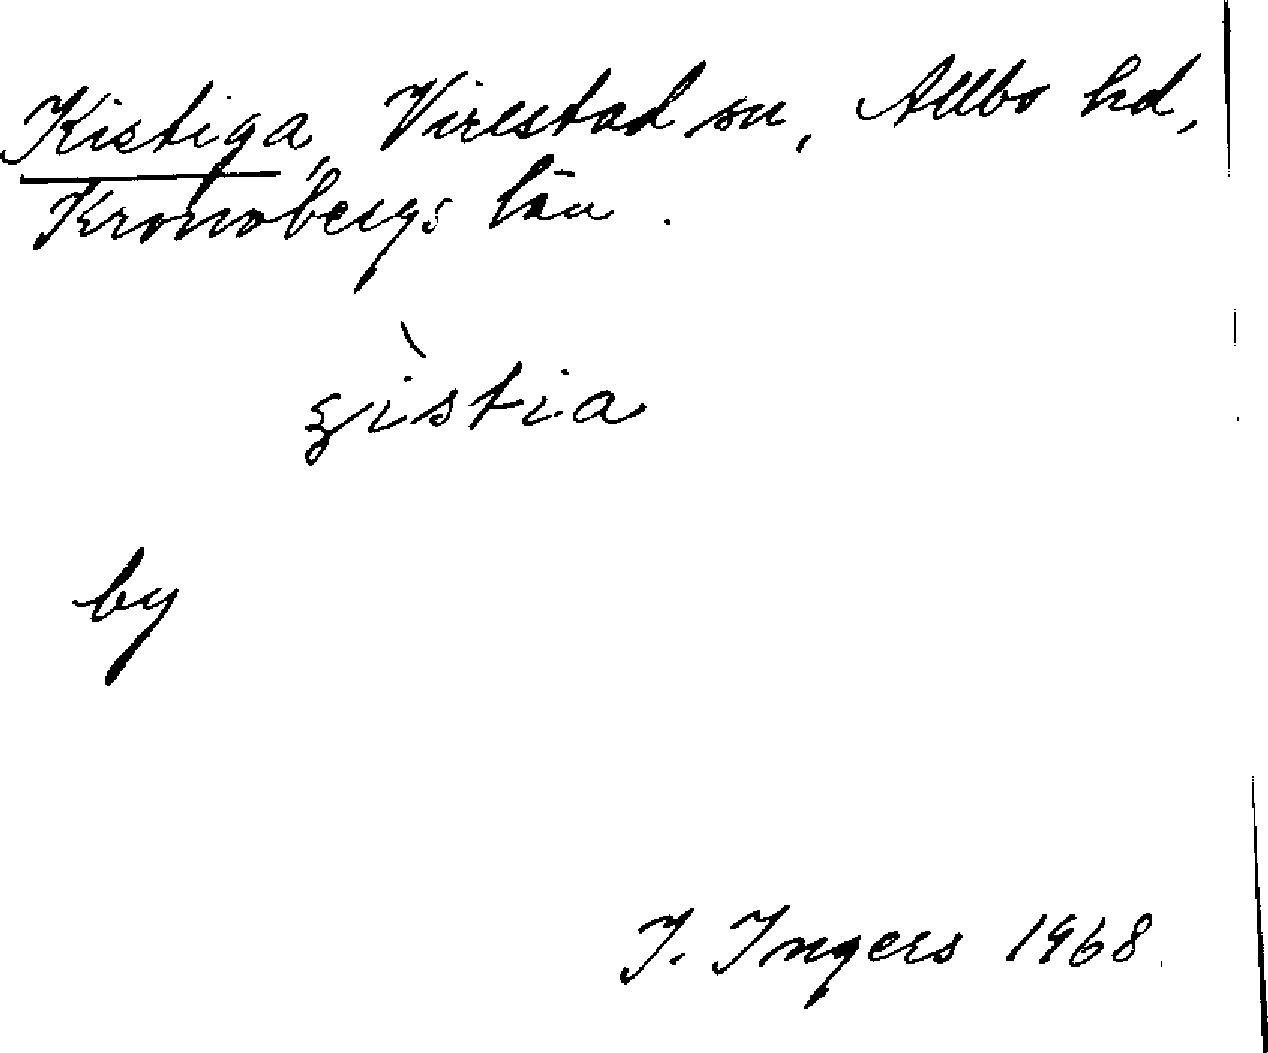 Kistiga, Virestad sn, Allbo hd,
Kronobergs län.
ʒìstia
by
I. Ingers 1968